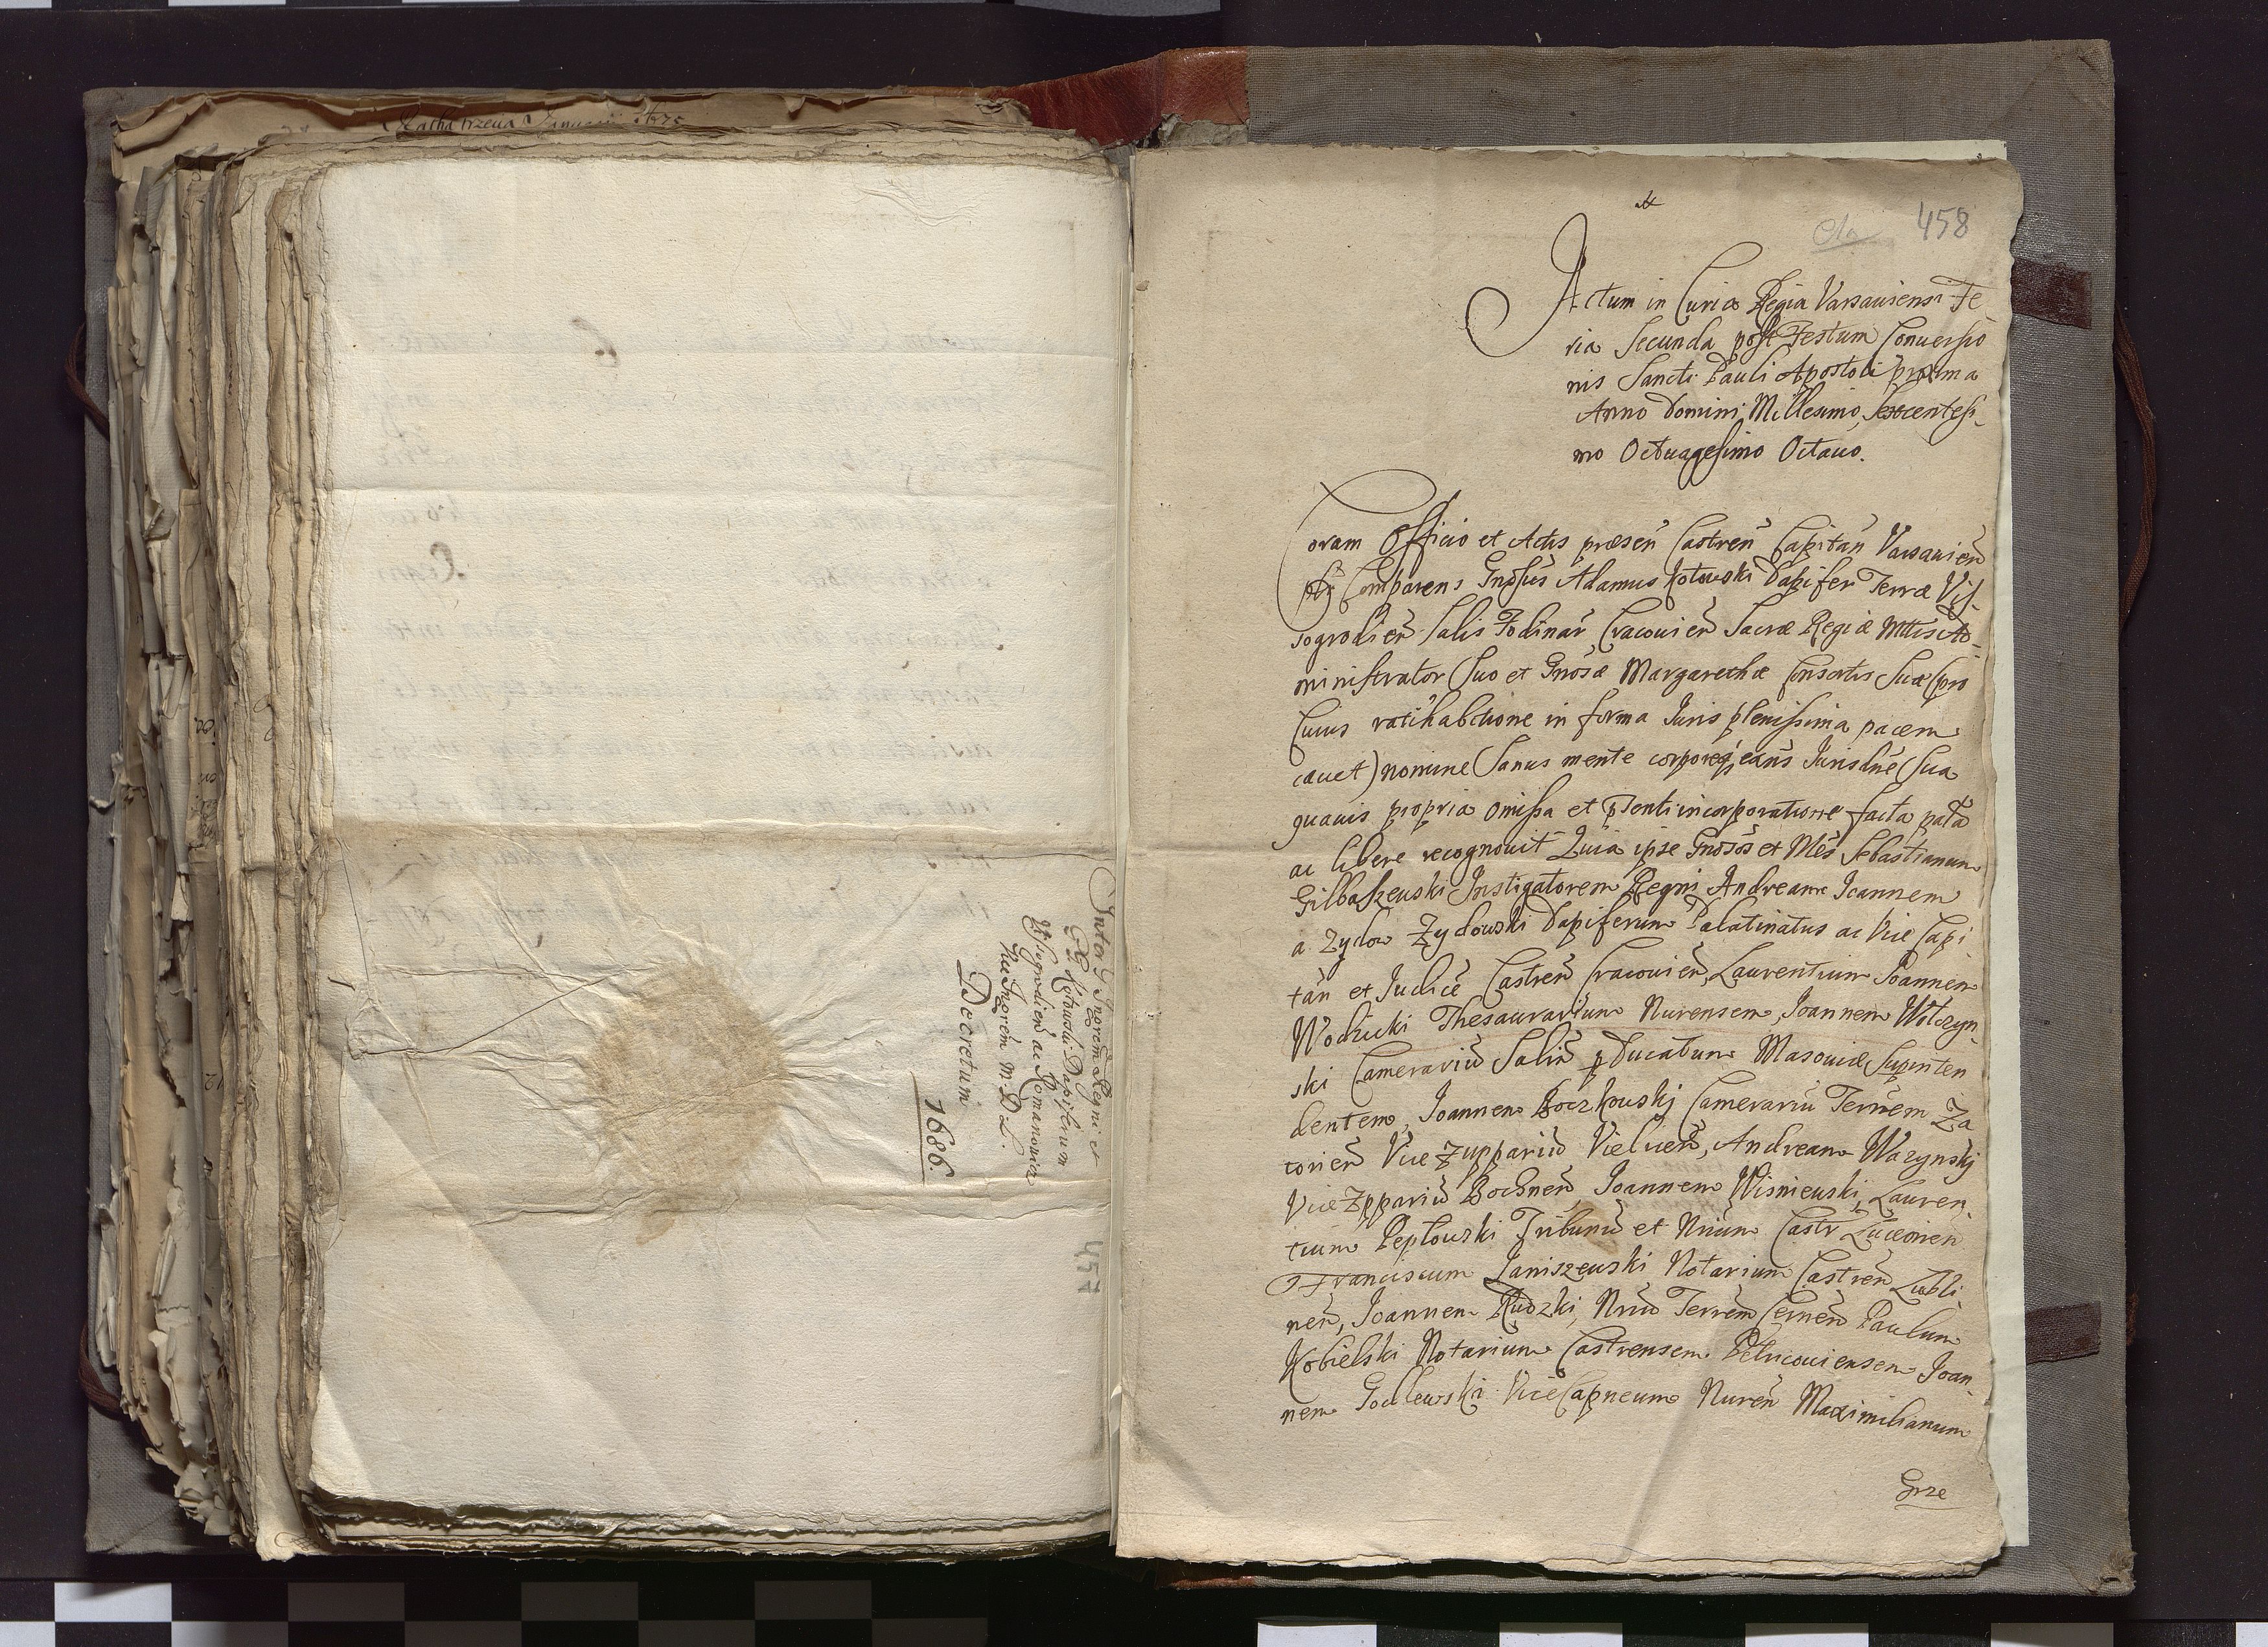 Inter G Ingrem Regni et
G Kotowski Dapiferum
Wyszogrodien ac Romanowicz
Vice Ingorem M. D. L.
Decretum
1686.
457
458
Actum in Curia Regia Varsauiensi Fe
ria Secunda post Festum Conuersio
nis Sancti Pauli Apostoli proxima
Anno Domini Millesimo Sexcentesi-
mo Octuagesimo Octauo.
Coram Officio et Actis præsen Castren Capitan Varsauien
Comparens Gnosus Adamus Kotowski Dapifer Terræ Vis-
sogrodien Salis Fodinar Cracouien Sacræ Regiæ Mttis Ad-
ministrator Suo et Gnosæ Margarethæ Consortis Suæ (pro
Cuius ratihabitione in forma Iuris plenissima pacem
cauet) nomine Sanus mente corporeq eans Iurisdne Sua
quauis propria omissa et pnti incorporatione facta palã
ac libere recognouit Quia ipse Gnosos et Mcos Sebastianum
Gilbaszewski Instigatorem Regni Andream Ioannem
a Zydow Zydowski Dapiferum Palatinatus ac Vice Capi
tan et Iudice Castren Cracouien, Laurentium Ioannem
Wodzicki Thesaurarium Nurensem, Ioannem Wolczyn-
ski Camerariu Salin p Ducatum Masouiæ Supinten
dentem, Ioannem Boczkowskj Camerariu Terrem Za
torien Vice Zuppariu Vielicen, Andream Wazynskj
Vice Zppariu Bochnen Ioannem Wisniewski, Lauren-
tium Peplowski Tribunu et Nrium Castr Luceorien
Franciscum Ianiszewski Notarium Castren Lubli-
nen, Ioannem Rudzki, Nriu Terrem Cernen Paulum
Kobielski Notarium Castrensem Petricouiensem Ioan-
nem Godlewski Vice Capneum Nuren Maximilianum
Grze